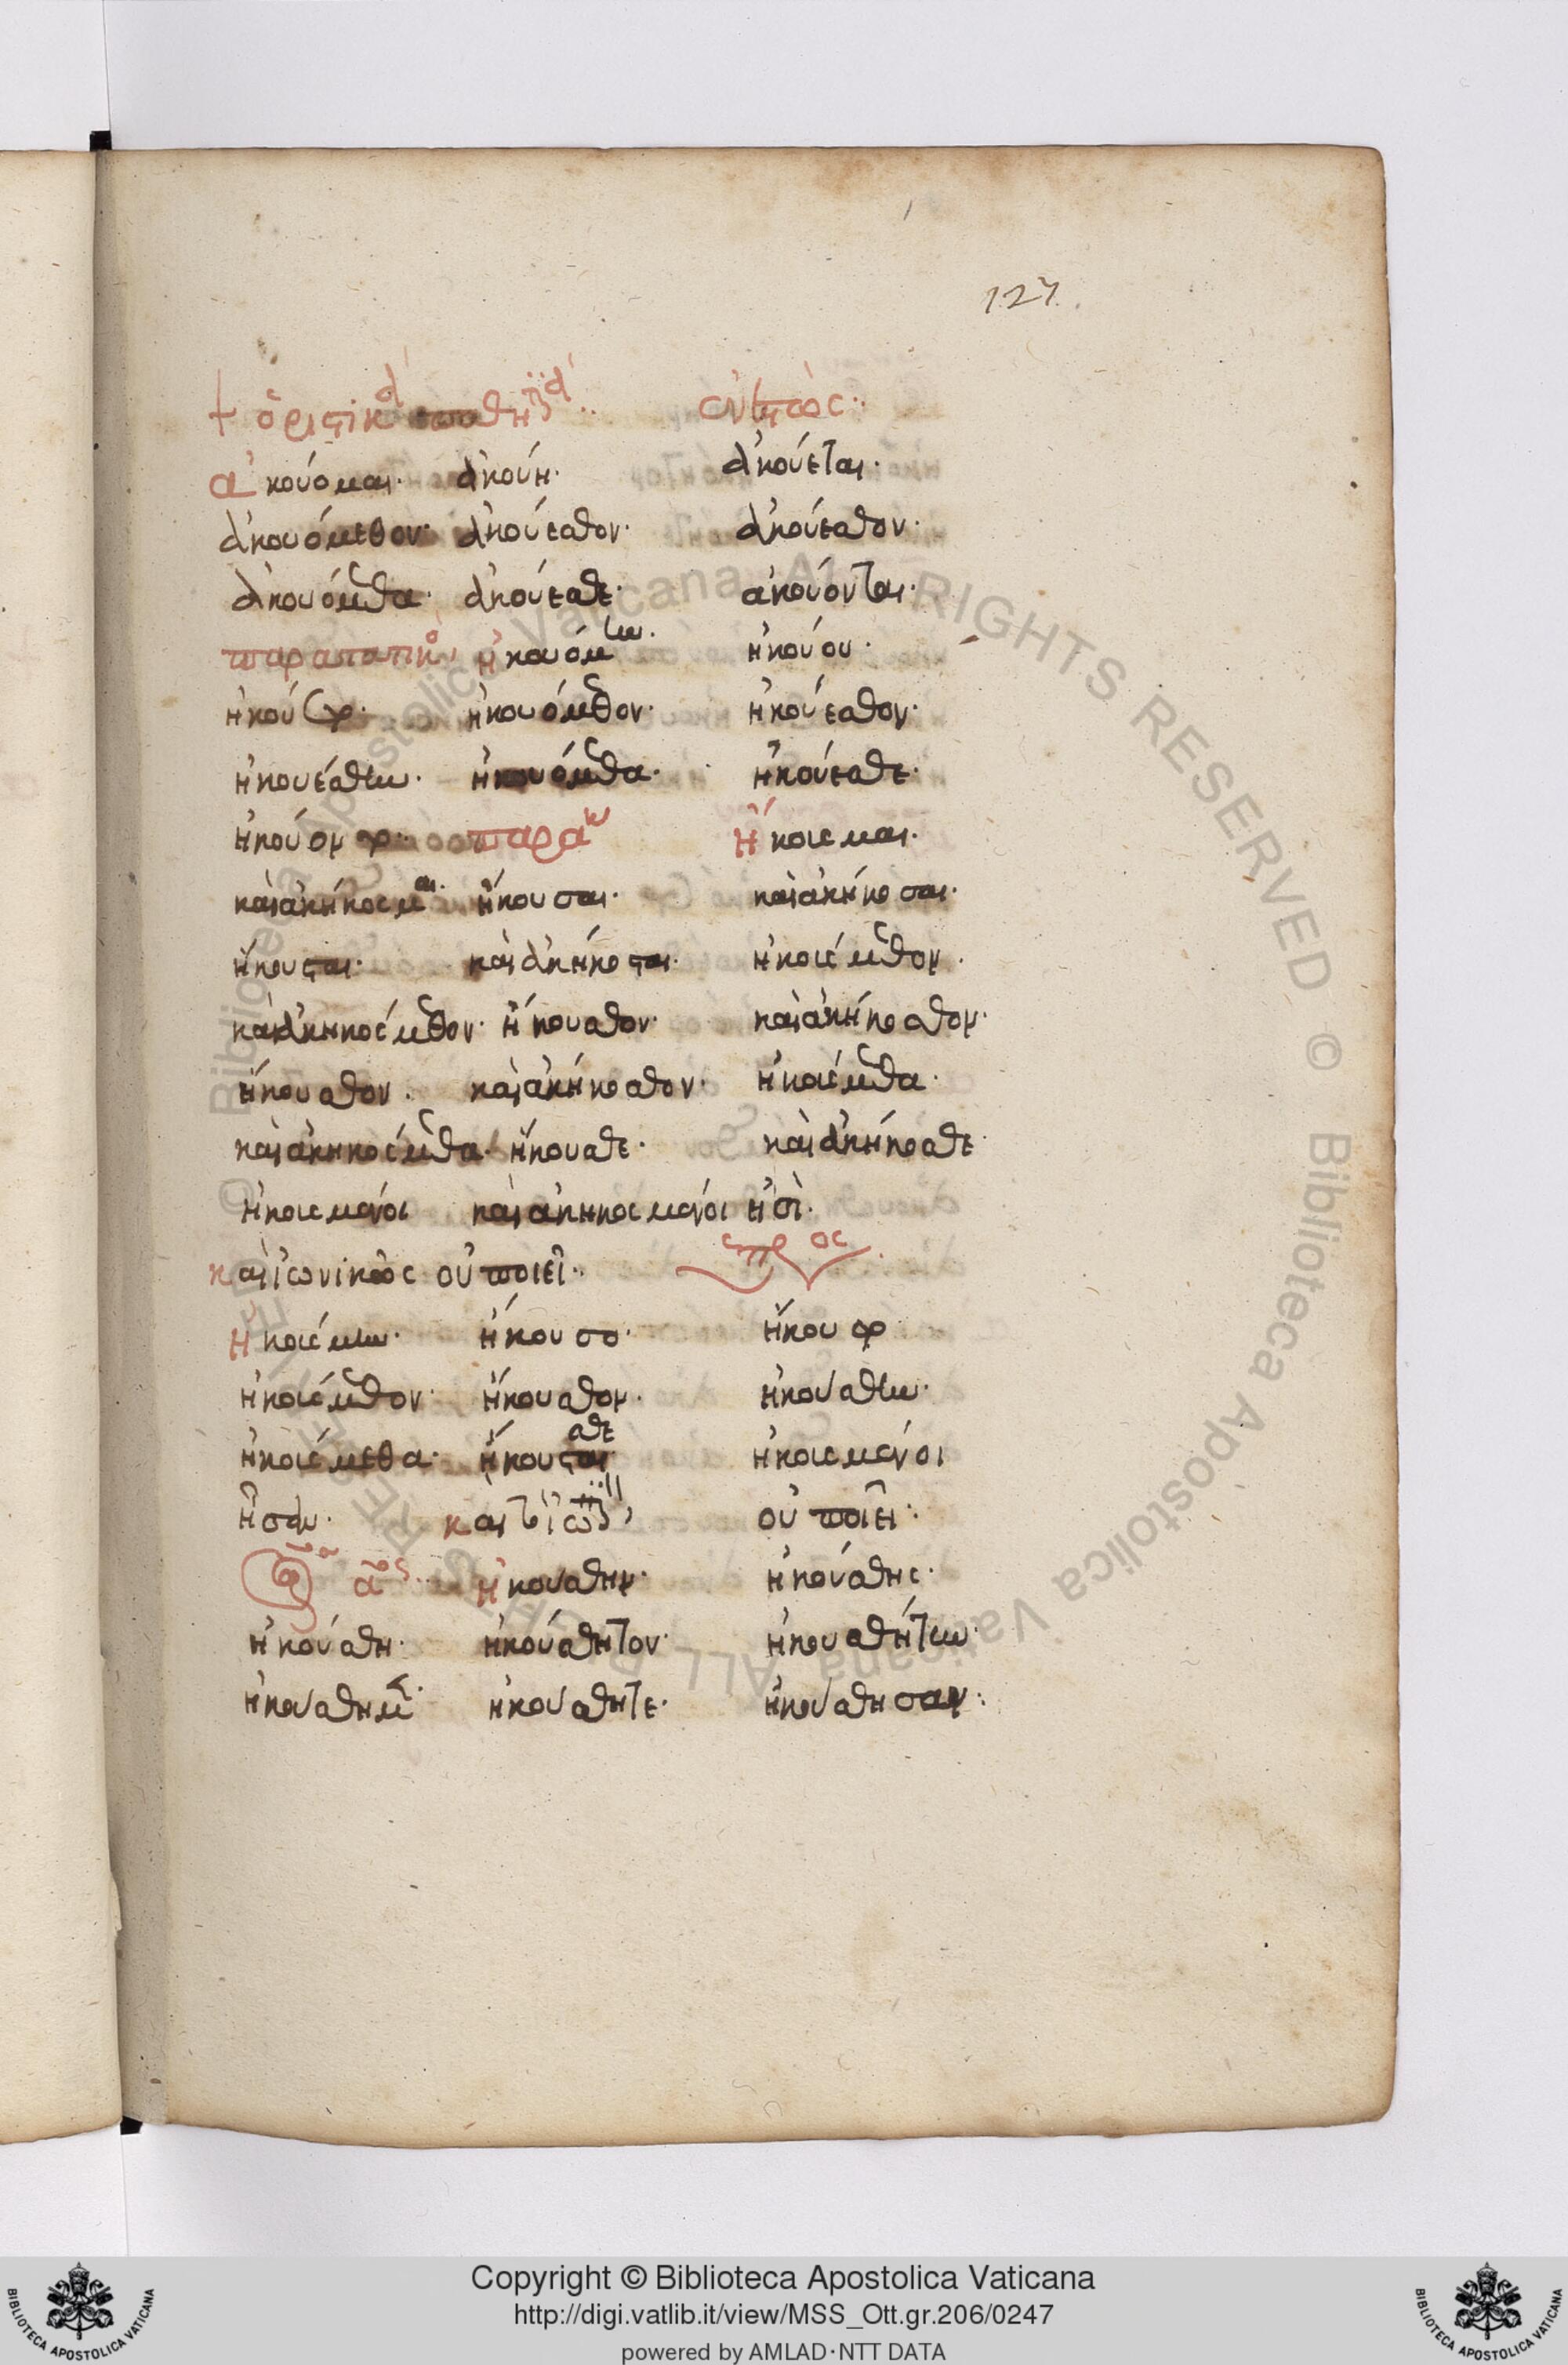 127.
ὁριστικὰ παθητικὰ ἐνεστὼς·
ἀκούομαι· ἀκούη· ἀκούεται·
ἀκουόμεθον· ἀκούεσθον· ἀκούεσθον·
ἀκουόμεθα· ἀκούεσθε· ἀκούονται·
παρατατικὸς ἠκουόμην· ἠκούου·
ἠκούετο· ἠκουόμεθον· ἠκούεσθον·
ἠκουέσθην· ἠκουόμεθα· ἠκούεσθε·
ἠκούοντο· παρακ ἤκουσμαι·
καὶ ἀκήκοσμαι· ἤκουσαι· καὶ ἀκήκοσαι·
ἤκουσται· καὶ ἀκήκοσται· ἠκούσμεθον·
καὶ ἀκηκόσμεθον· ἤκουσθον· καὶ ἀκήκοσθον·
ἤκουσθον· καὶ ἀκήκοσθον· ἠκούσμεθα·
καὶ ἀκηκόσμεθα· ἤκουσθε· καὶ ἀκήκοσθε·
ἠκουσμένοι καὶ ἀκηκοσμένοι εἰσὶ·
καὶ ἰωνικῶς οὐ ποιεῖ·
ἠκούσμην· ἤκουσο· ἤκουστο
ἠκούσμεθον· ἤκουσθον· ἠκούσθην·
ἠκούσμεθα· ἤκουσθε ἠκουσμένοι
ἦσαν· οὐ ποιεῖ·
ἠκούσθην· ἠκούσθης·
ἠκούσθη· ἠκούσθητον· ἠκουσθήτην·
ἠκούσθημεν· ἠκούσθητε· ἠκούσθησαν·
Copyright © Biblioteca Apostolica Vaticana
http://digi.vatlib.it/view/MSS_Ott.gr.206/0247
powered by AMLAD·NTT DATA
BIBLIOTECA APOSTOLICA VATICANA
BIBLIOTECA APOSTOLICA VATICANA
© Biblioteca Apostolica Vaticana ALL RIGHTS RESERVED © Biblioteca Apostolica Vaticana ALL RIGHTS RESERVED